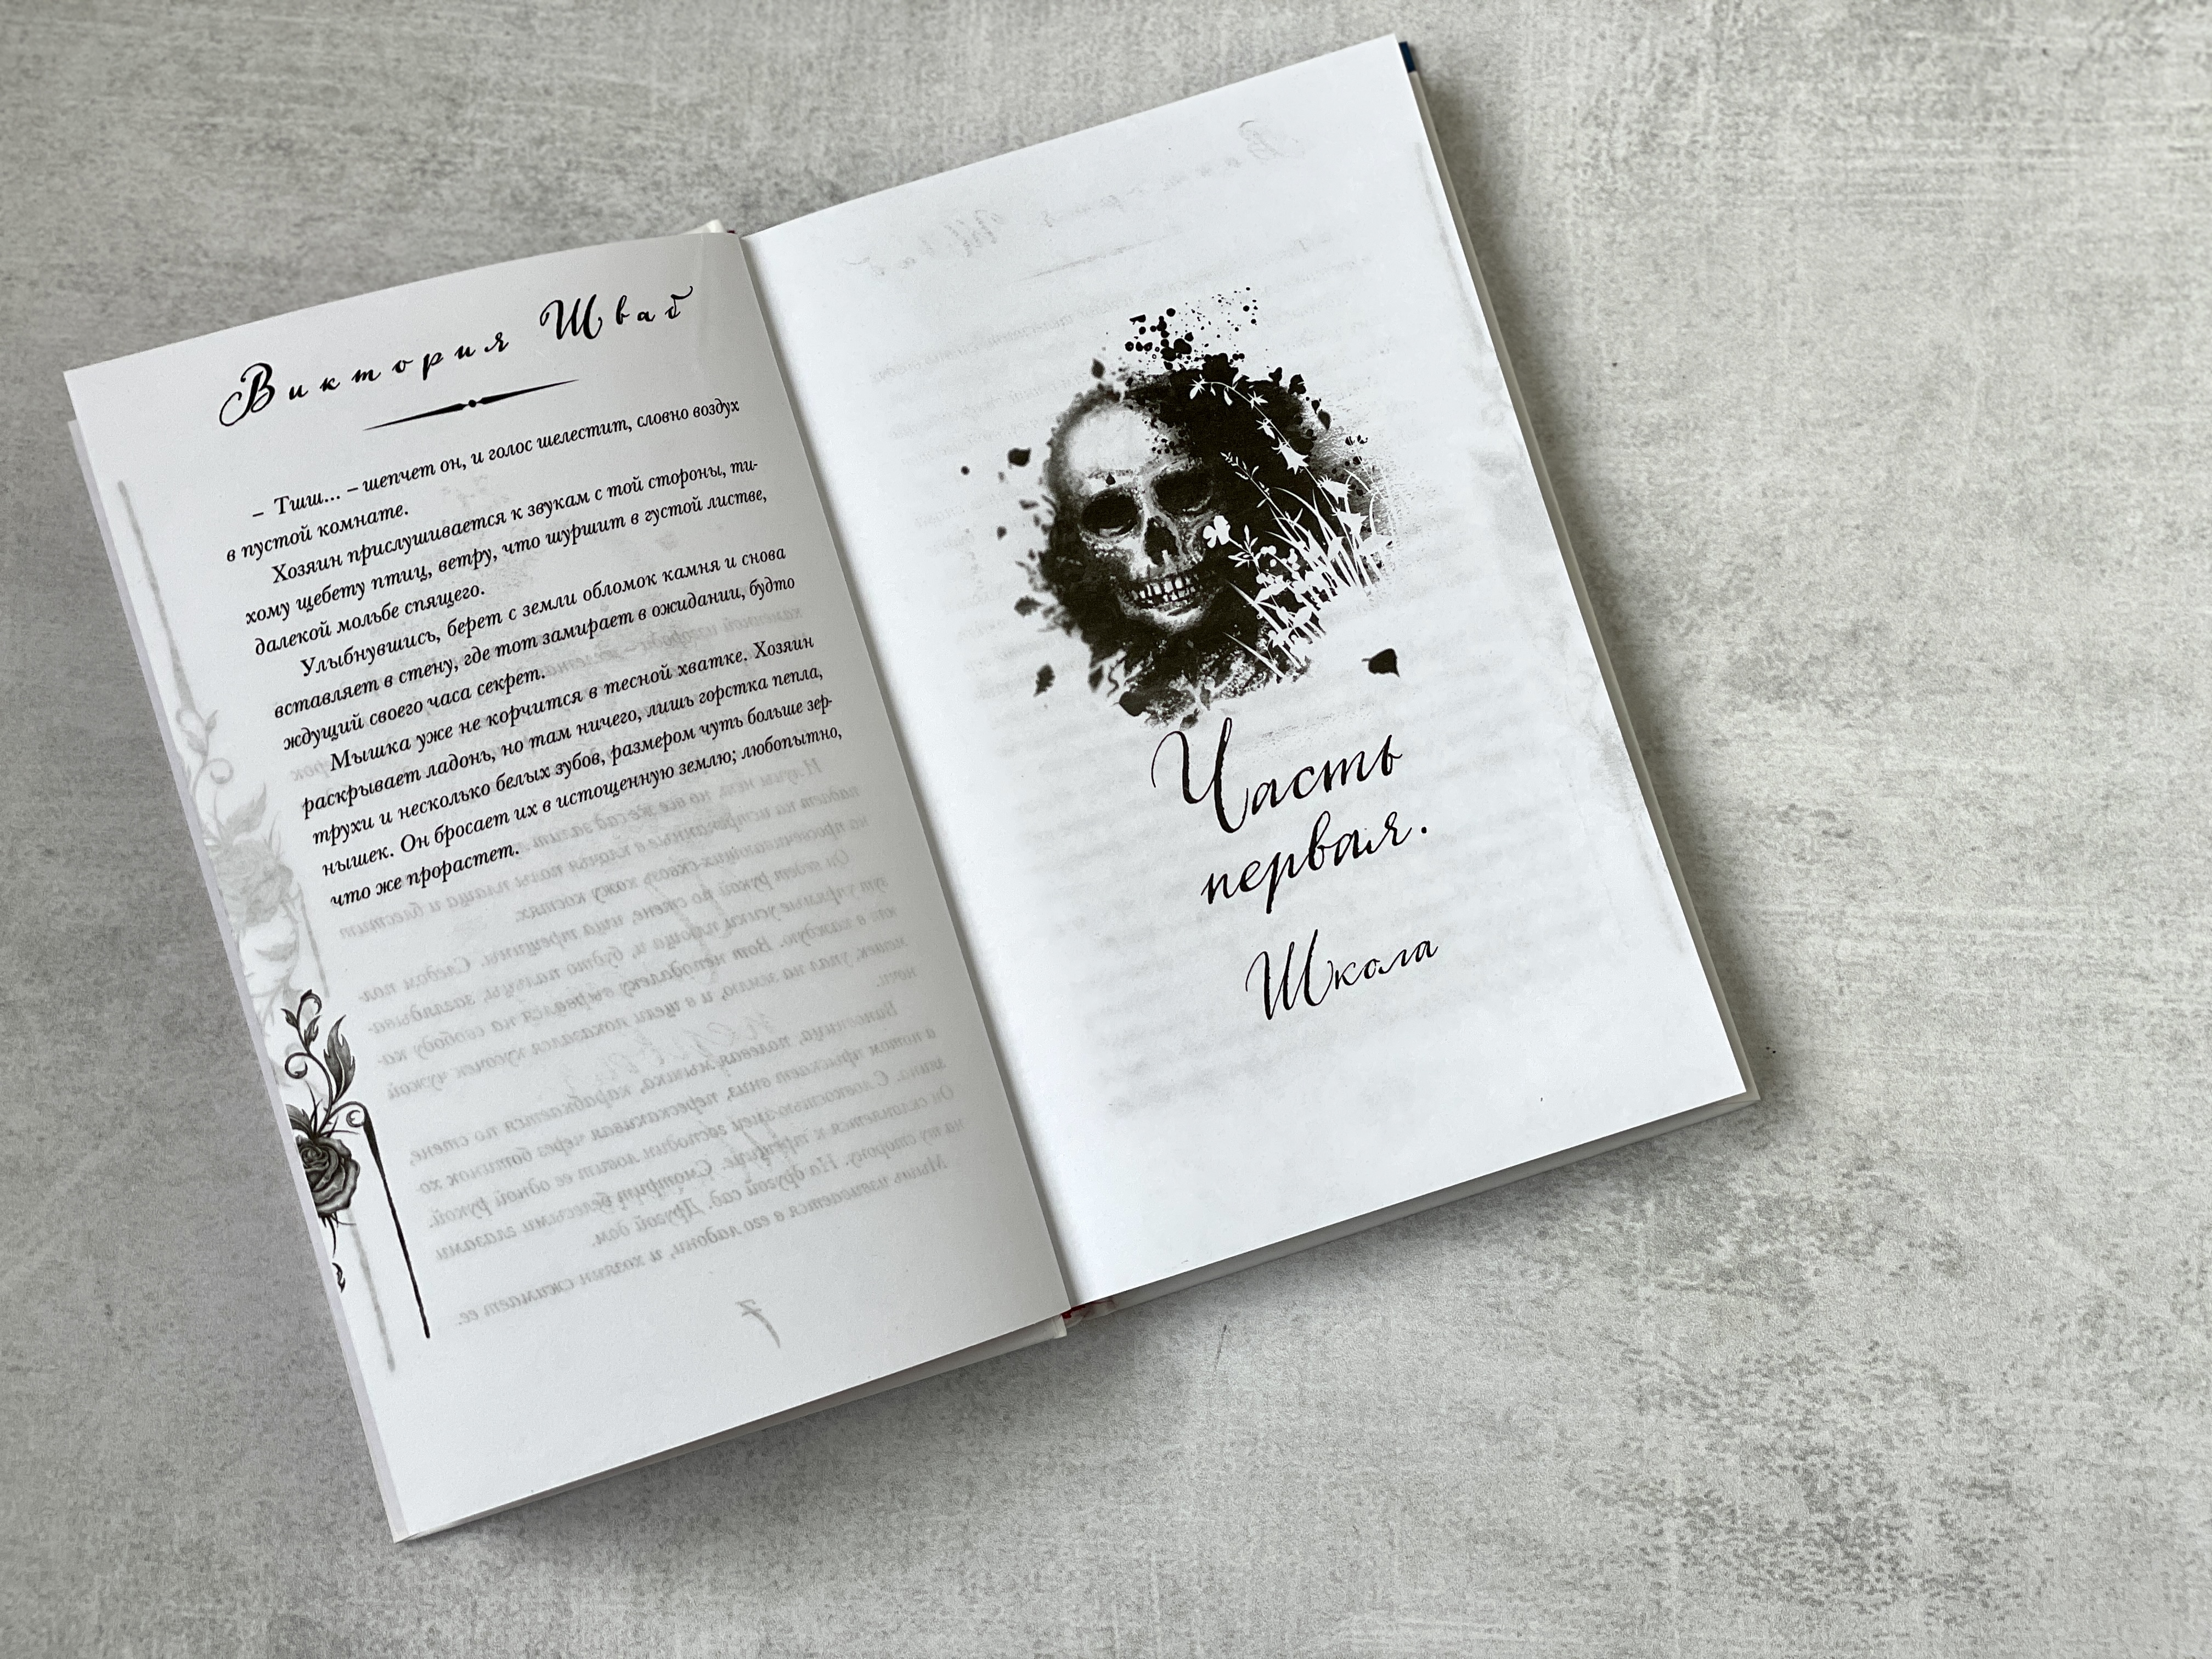 Виктория Шваб
– Тшш... – шепчет он, и голос шелестит, словно воздух
в пустой комнате.
Хозяин прислушивается к звукам с той стороны, ти-
хому щебету птиц, ветру, что шуршит в густой листве,
далекой мольбе спящего.
Улыбнувшись, берет с земли обломок камня и снова
вставляет в стену, где тот замирает в ожидании, будто
ждущий своего часа секрет.
Мышка уже не корчится в тесной хватке. Хозяин
раскрывает ладонь, но там ничего, лишь горстка пепла,
трухи и несколько белых зубов, размером чуть больше зер-
нышек. Он бросает их в истощенную землю; любопытно,
что же прорастет.
7
Часть
первая.
Школа